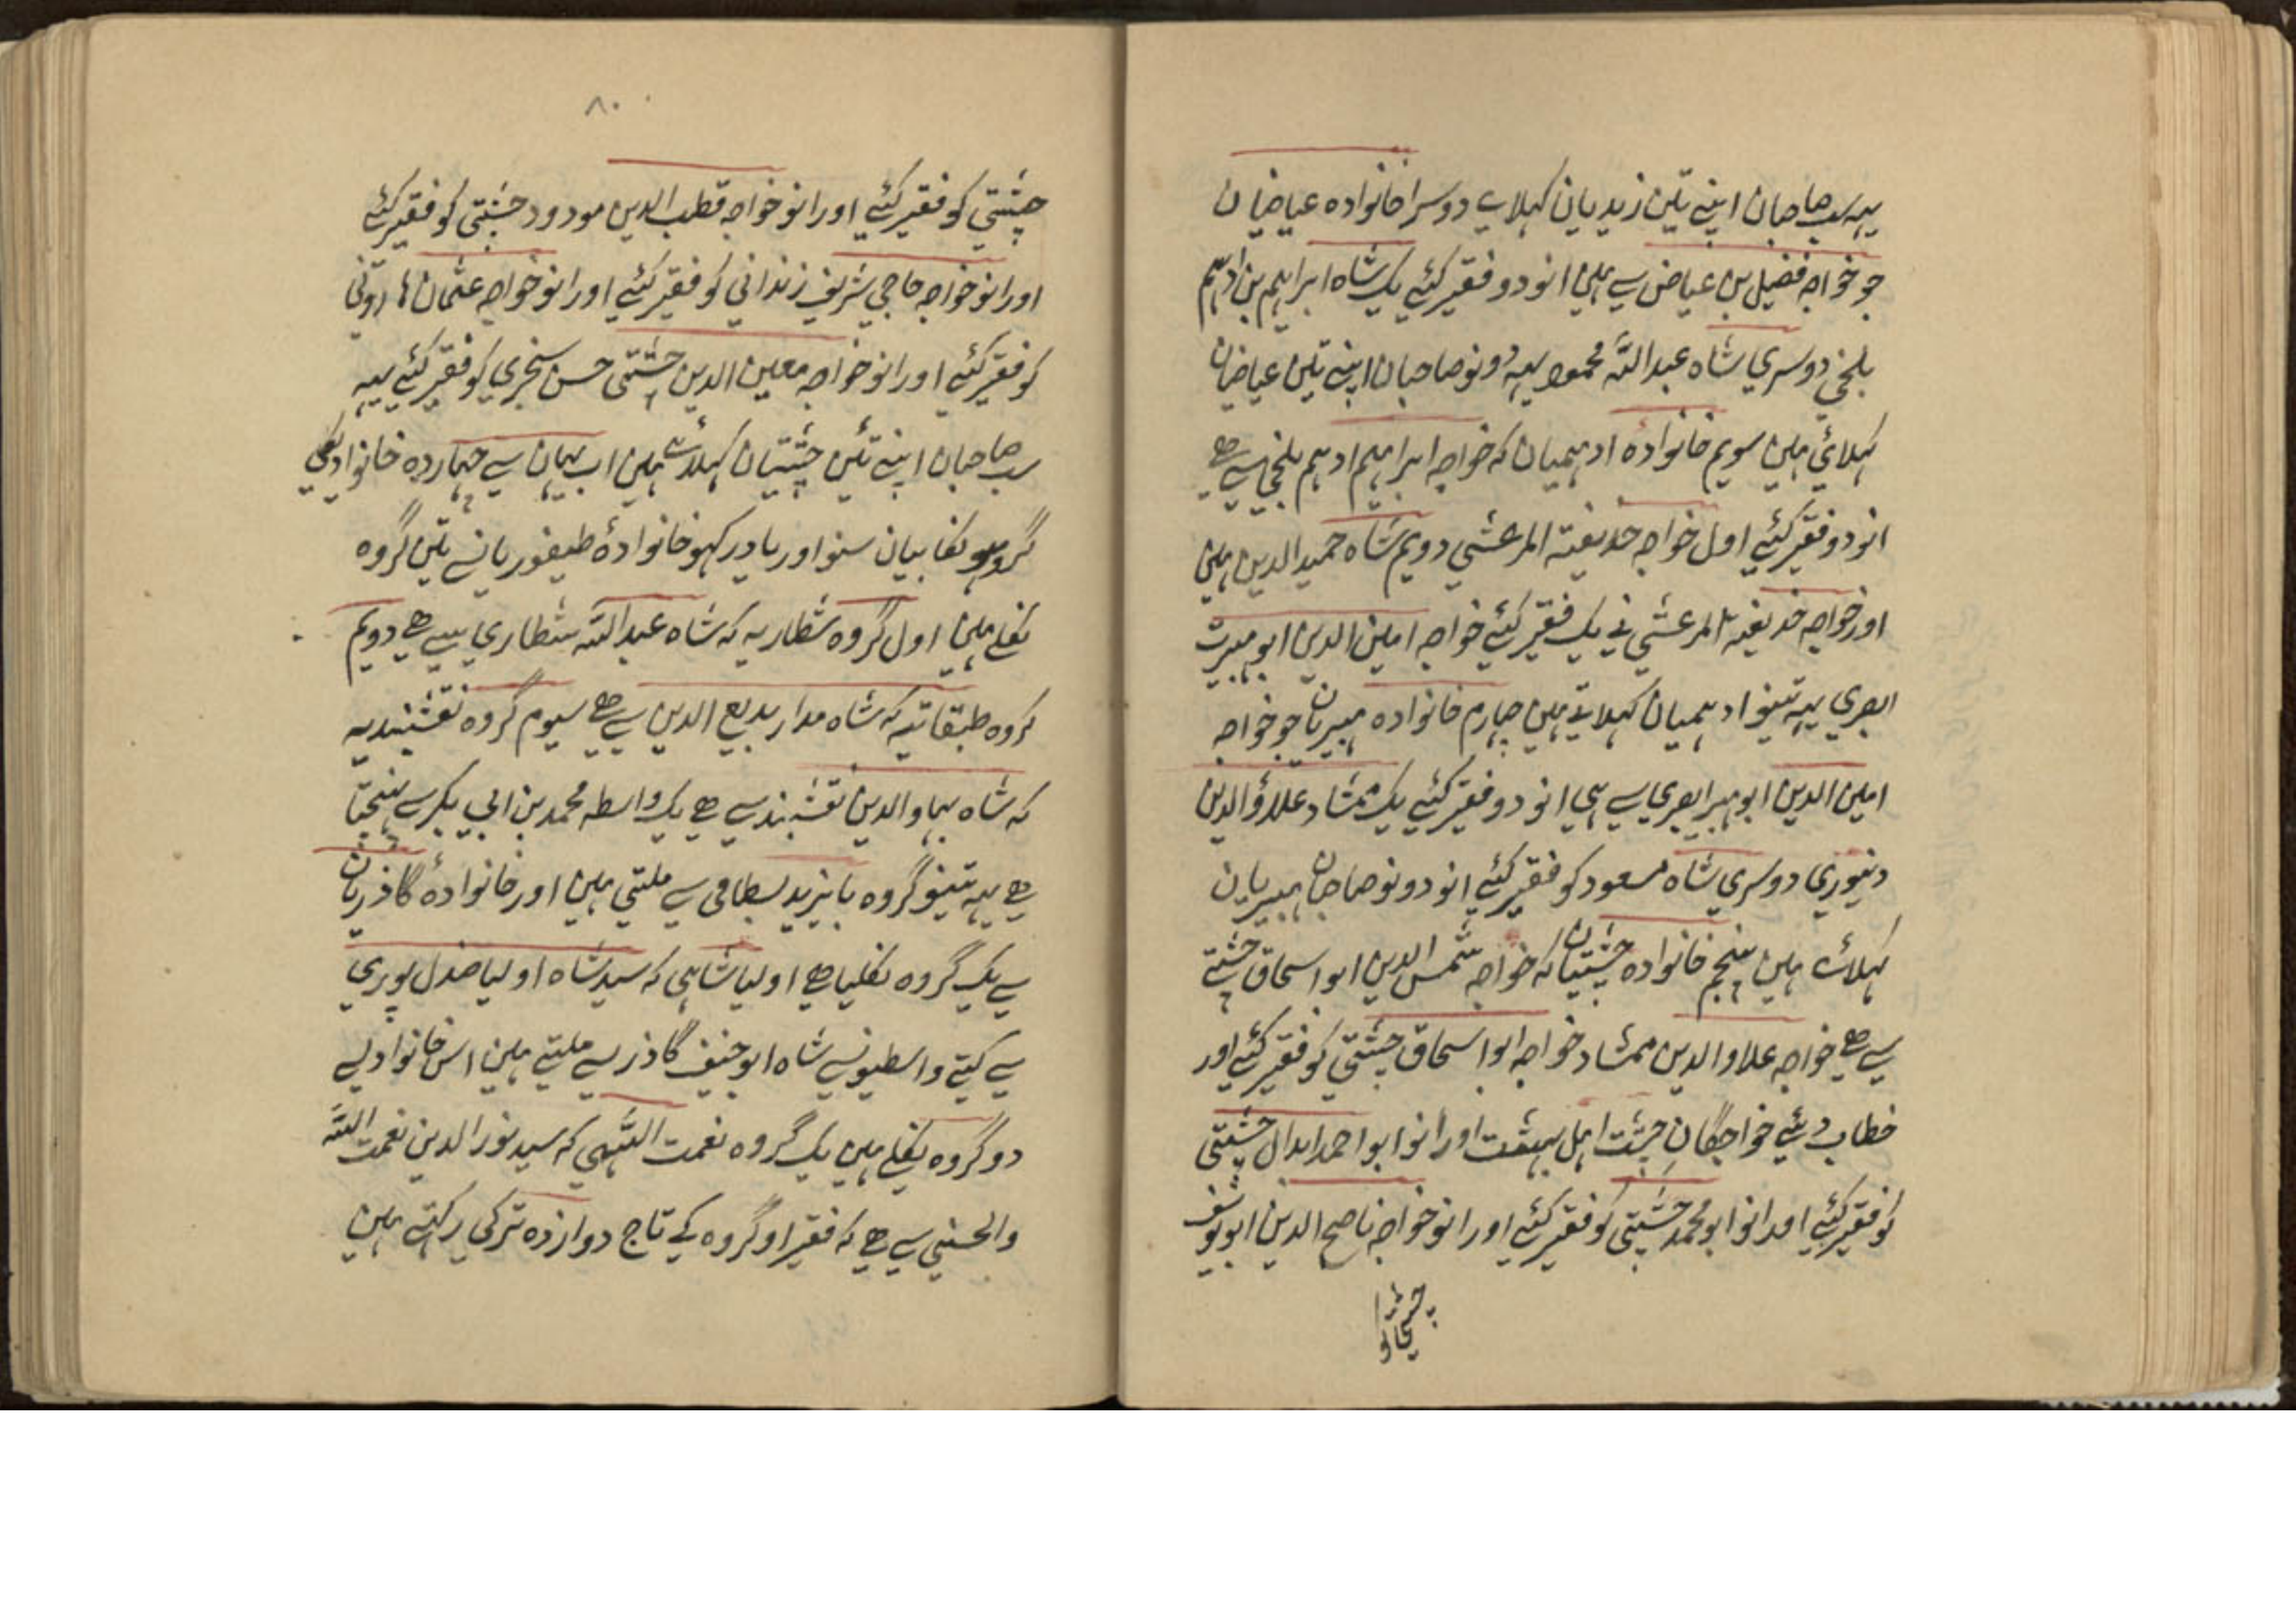 یہہ سب صاحبان اپنے تئین زیدیان کہلاے دوسرا خانوادہ عیاضیان
جو خواجہ فضیل بن عیاض سے ہین انو دو فقیر کئیے یک شاہ ابراہیم بن ادہم
بلخی دوسری شاہ عبداللہ محمود یہہ دونو صاحبان اپنے تئین عیاضیان
کہلائی ہین سویم خانوادہ ادہمیان کہ خواجہ ابراہیم ادہم بلخی سے ہے
انو دو فقیر کئیے اول خواجہ حذیفتہ المرعشی دویم شاہ حمید الدین ہین
اور خواجہ خدیفہ المرعشی نے یک فقیر کئیے خواجہ امین الدین ابو ہبیرت
البصری یہہ تینو ادہمیان کہلاتے ہین چہارم خانوادہ ہبیریان جو خواجہ
امین الدین ابو ہبیر البصری سے ہی انو دو فقیر کئیے یک ممشاد علاؤ الدین
دنیوری دوسری شاہ مسعود کو فقیر کئیے انو دونو صاحبان ہبیریان
کہلائے ہین پنجم خانوادہ چشتیان کہ خواجہ شمس الدین ابو اسحاق چشتے
سے ہے خواجہ علاو الدین ممشاد خواجہ ابو اسحاق چشتی کو فقیر کئیے اور
خطاب دئیے خواجگان چشت اہل بہشت اور انو ابو احمد ابدال چشتی
کو فقیر کئیے اور انو ابو محمد چشتی کو فقیر کئیے اور انو خواجہ ناصح الدین ابو یوسف
۸۰
چشتی کو فقیر کئیے اور انو خواجہ قطب الدین مودود چشتی کو فقیر کئیے
اور انو خواجہ حاجی شریف زندانی کو فقیر کئیے اور انو خواجہ عثمان ہارونی
کو فقیر کئیے اور انو خواجہ معین الدین چشتی حسن سنجری کو فقیر کئیے یہہ
سب صاحبان اپنے تئین چشتیان کہلائے ہین اب یہان سے چہاردہ خانوادیکی
گروہونکا بیان سنو اور یاد رکہو خانوادۂ طیفوریانسے تین گروہ
نکلے ہین اول گروہ شطاریہ کہ شاہ عبداللہ شطاری سے ہے دویم
گروہ طبقاتیہ کہ شاہ مدار بدیع الدین سے ہے سیوم گروہ نقشبندیہ
کہ شاہ بہاو الدین نقشبند سے ہے یک واسطہ محمد بن ابی بکر سے پنہچتا
ہے یہہ تینو گروہ بایزید بسطامی سے ملتی ہین اور خانوادۂ گاذریان
سے یک گروہ نکلیا ہے اولیا شاہی کہ سید شاہ اولیا صندل پوری
سے کیتے واسطیونسے شاہ ابو حنیف گاذر سے ملتے ہین اس خانوادیسے
دو گروہ نکلے ہین یک گروہ نعمت اللہی کہ سید نور الدین نعمت اللہ
والحسنی سے ہے کہ فقیر او گروہ کے تاج دوازدہ ترکی رکہتے ہین